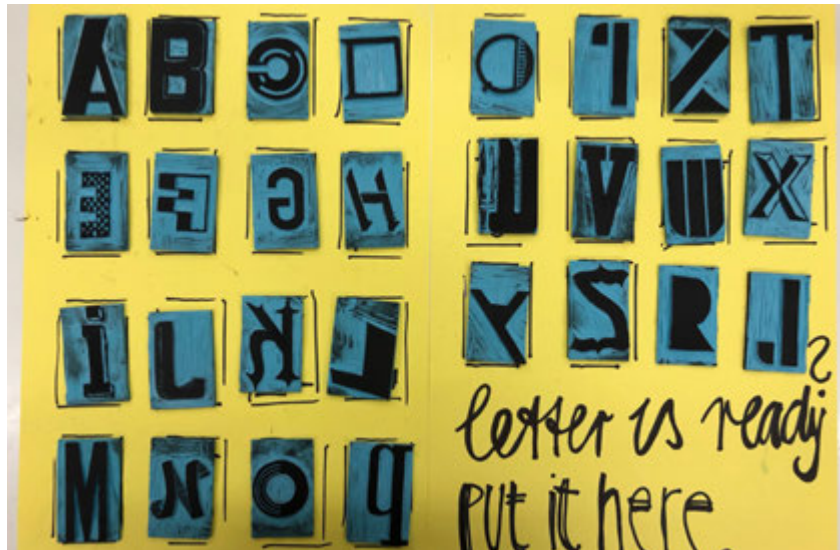 A B C D
E F G H
I J K L
M N O P
Q T
U V W X
Y Z R J
letter is ready
put it here